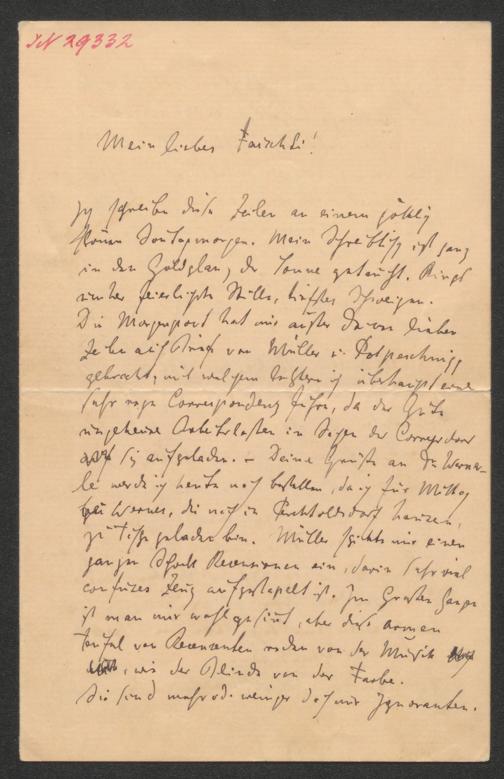 IN 29332
Mein lieber Faischti!
Ich schreibe diese Zeilen an einem göttlich
schönen Sonntagmorgen. Mein Schreibtisch ist ganz
in den Goldglanz der Sonne getaucht. Rings
umher feierlichste Stille, tiefstes Schweigen.
Die Morgenpost hat mir außer Deinen lieben
Zeilen auch Briefe von Müller u. Potpeschnigg
gebracht, mit welchem letztern ich überhaupt eine
sehr rege Correspondenz führe, da der Gute
ungeheure Arbeitslasten in Sachen der Corregidor
sich aufgeladen. – Deine Grüße an Dr Werner-
le werde ich heute noch bestellen, da ich für Mittag
bei Werners, die noch in Perchtoldsdorf hausen,
zu Tisch geladen bin. Müller schickte mir einen
ganzen Schock Recensionen ein, darin sehr viel
confuses Zeug aufgestapelt ist. Im Großen Ganzen
ist man mir wohlgesinnt, aber diese armen
Teufel von Recensenten reden von der Musik
, wie der Blinde von der Farbe.
Sie sind mehr od. weniger doch nur Ignoranten.